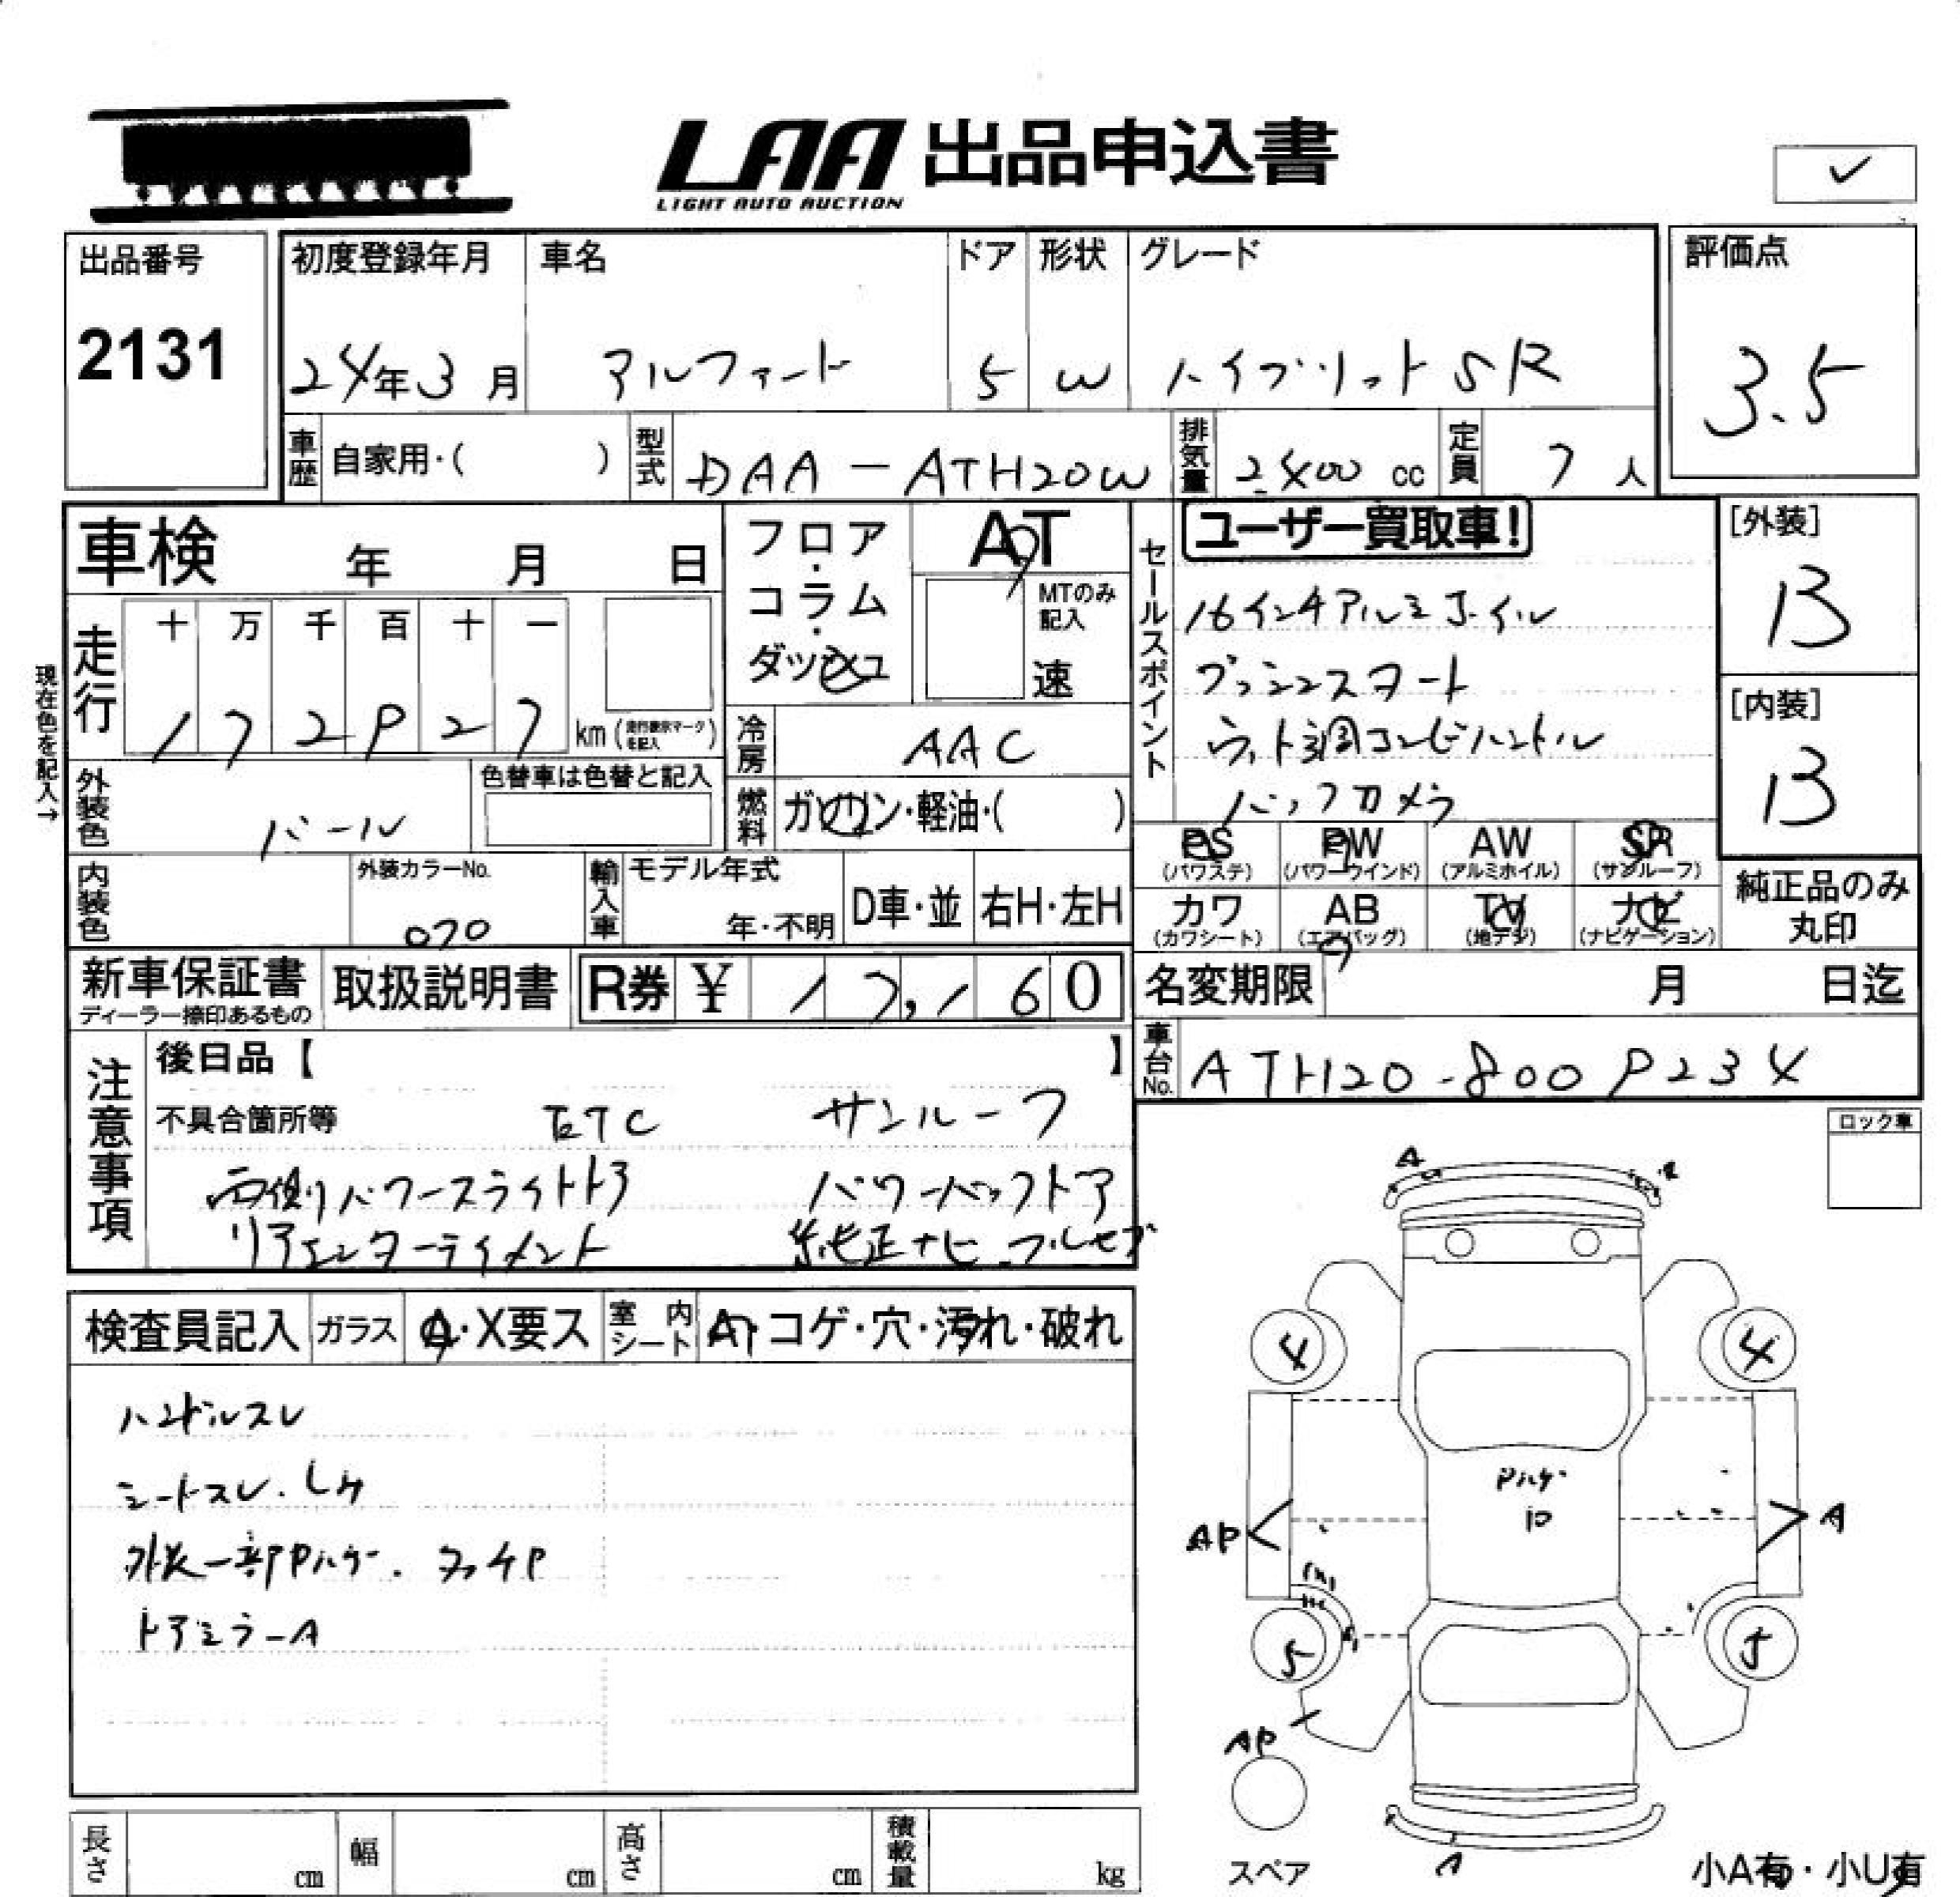 LAA 出品申込書
LIGHT AUTO AUCTION
✓
出品番号
2131
初度登録年月
24年3月
車名
アルファード
ドア
5
形状
W
グレード
ハイブリッド SR
評価点
3.5
車歴
自家用・( )
型式
DAA-ATH20W
排気量
2400 cc
定員
7人
車検 年 月 日
フロア・コラム・ダッシュ
AT
MTのみ記入
速
セールスポイント
ユーザー買取車!
16インチアルミホイル
プッシュスタート
ウッド調コンビハンドル
バックカメラ
[外装]
B
[内装]
B
現在色を記入→
走行
十 万 千 百 十 一
172927 km(走行表示マークを記入)
冷房
AAC
外装色
パール
色替車は色替と記入
燃料
ガソリン・軽油・( )
PS
(パワステ)
PW
(パワーウインド)
AW
(アルミホイル)
SR
(サンルーフ)
内装色
外装カラーNo.
070
輸入車
モデル年式
年・不明
D車・並
右H・左H
カワ
(カワシート)
AB
(エアバッグ)
TV
(地デジ)
ナビ
(ナビゲーション)
純正品のみ
丸印
新車保証書
ディーラー捺印あるもの
取扱説明書
R券 ¥ 17,160
名変期限 月 日迄
車台No.
ATH20-8009234
注意事項
後日品【 】
不具合箇所等 ETC サンルーフ
両側パワースライドドア パワーバックドア
リアエンターテイメント 純正ナビ フルセグ
ロック車
検査員記入
ガラス
A・X要ス
室内シート
A・コゲ・穴・汚れ・破れ
ハンドルスレ
シートスレ.シワ
外装一部Pハゲ.タッチP
ドアミラーA
A
A
4
4
Pハゲ
10
AP
A
5
5
AP
スペア
A
小A有・小U有
長さ cm
幅 cm
高さ cm
積載量 kg